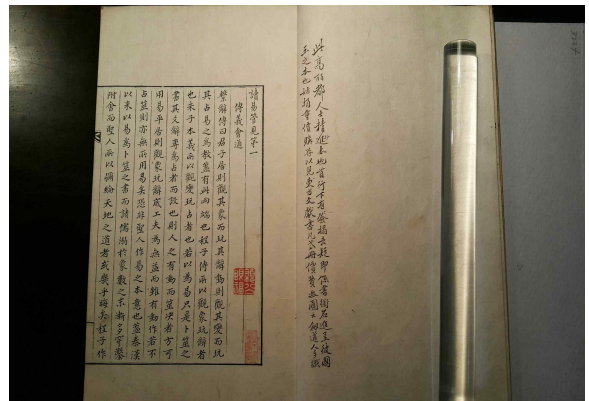 此高麗都人士精進本也首行下有簽揭去疑即係書名進呈彼國
王之本也重價購存以見東方文獻書凡六冊價費圓大道人手識
讀易管見第一
傳義會通
繫辭傳曰君子居則觀其象而玩其辭動則觀其變而玩
其占易之為教蓋有此兩端也程子傳所以觀象玩辭者
也朱子本義所以觀變玩占者也若以為易只是卜筮之
書其文辭專為占者而設也則人之有動而筮决者方可
用易平居則觀象玩辭底工夫為無益而頼有動作若不
占筮則亦無所用易矣恐非聖人作易之本意也蓋秦漢
以來以易為卜筮之書而諸儒溺於象數之末漸多穿鑿
附會而聖人所以彌綸天地之道者或幾乎晦矣程子作